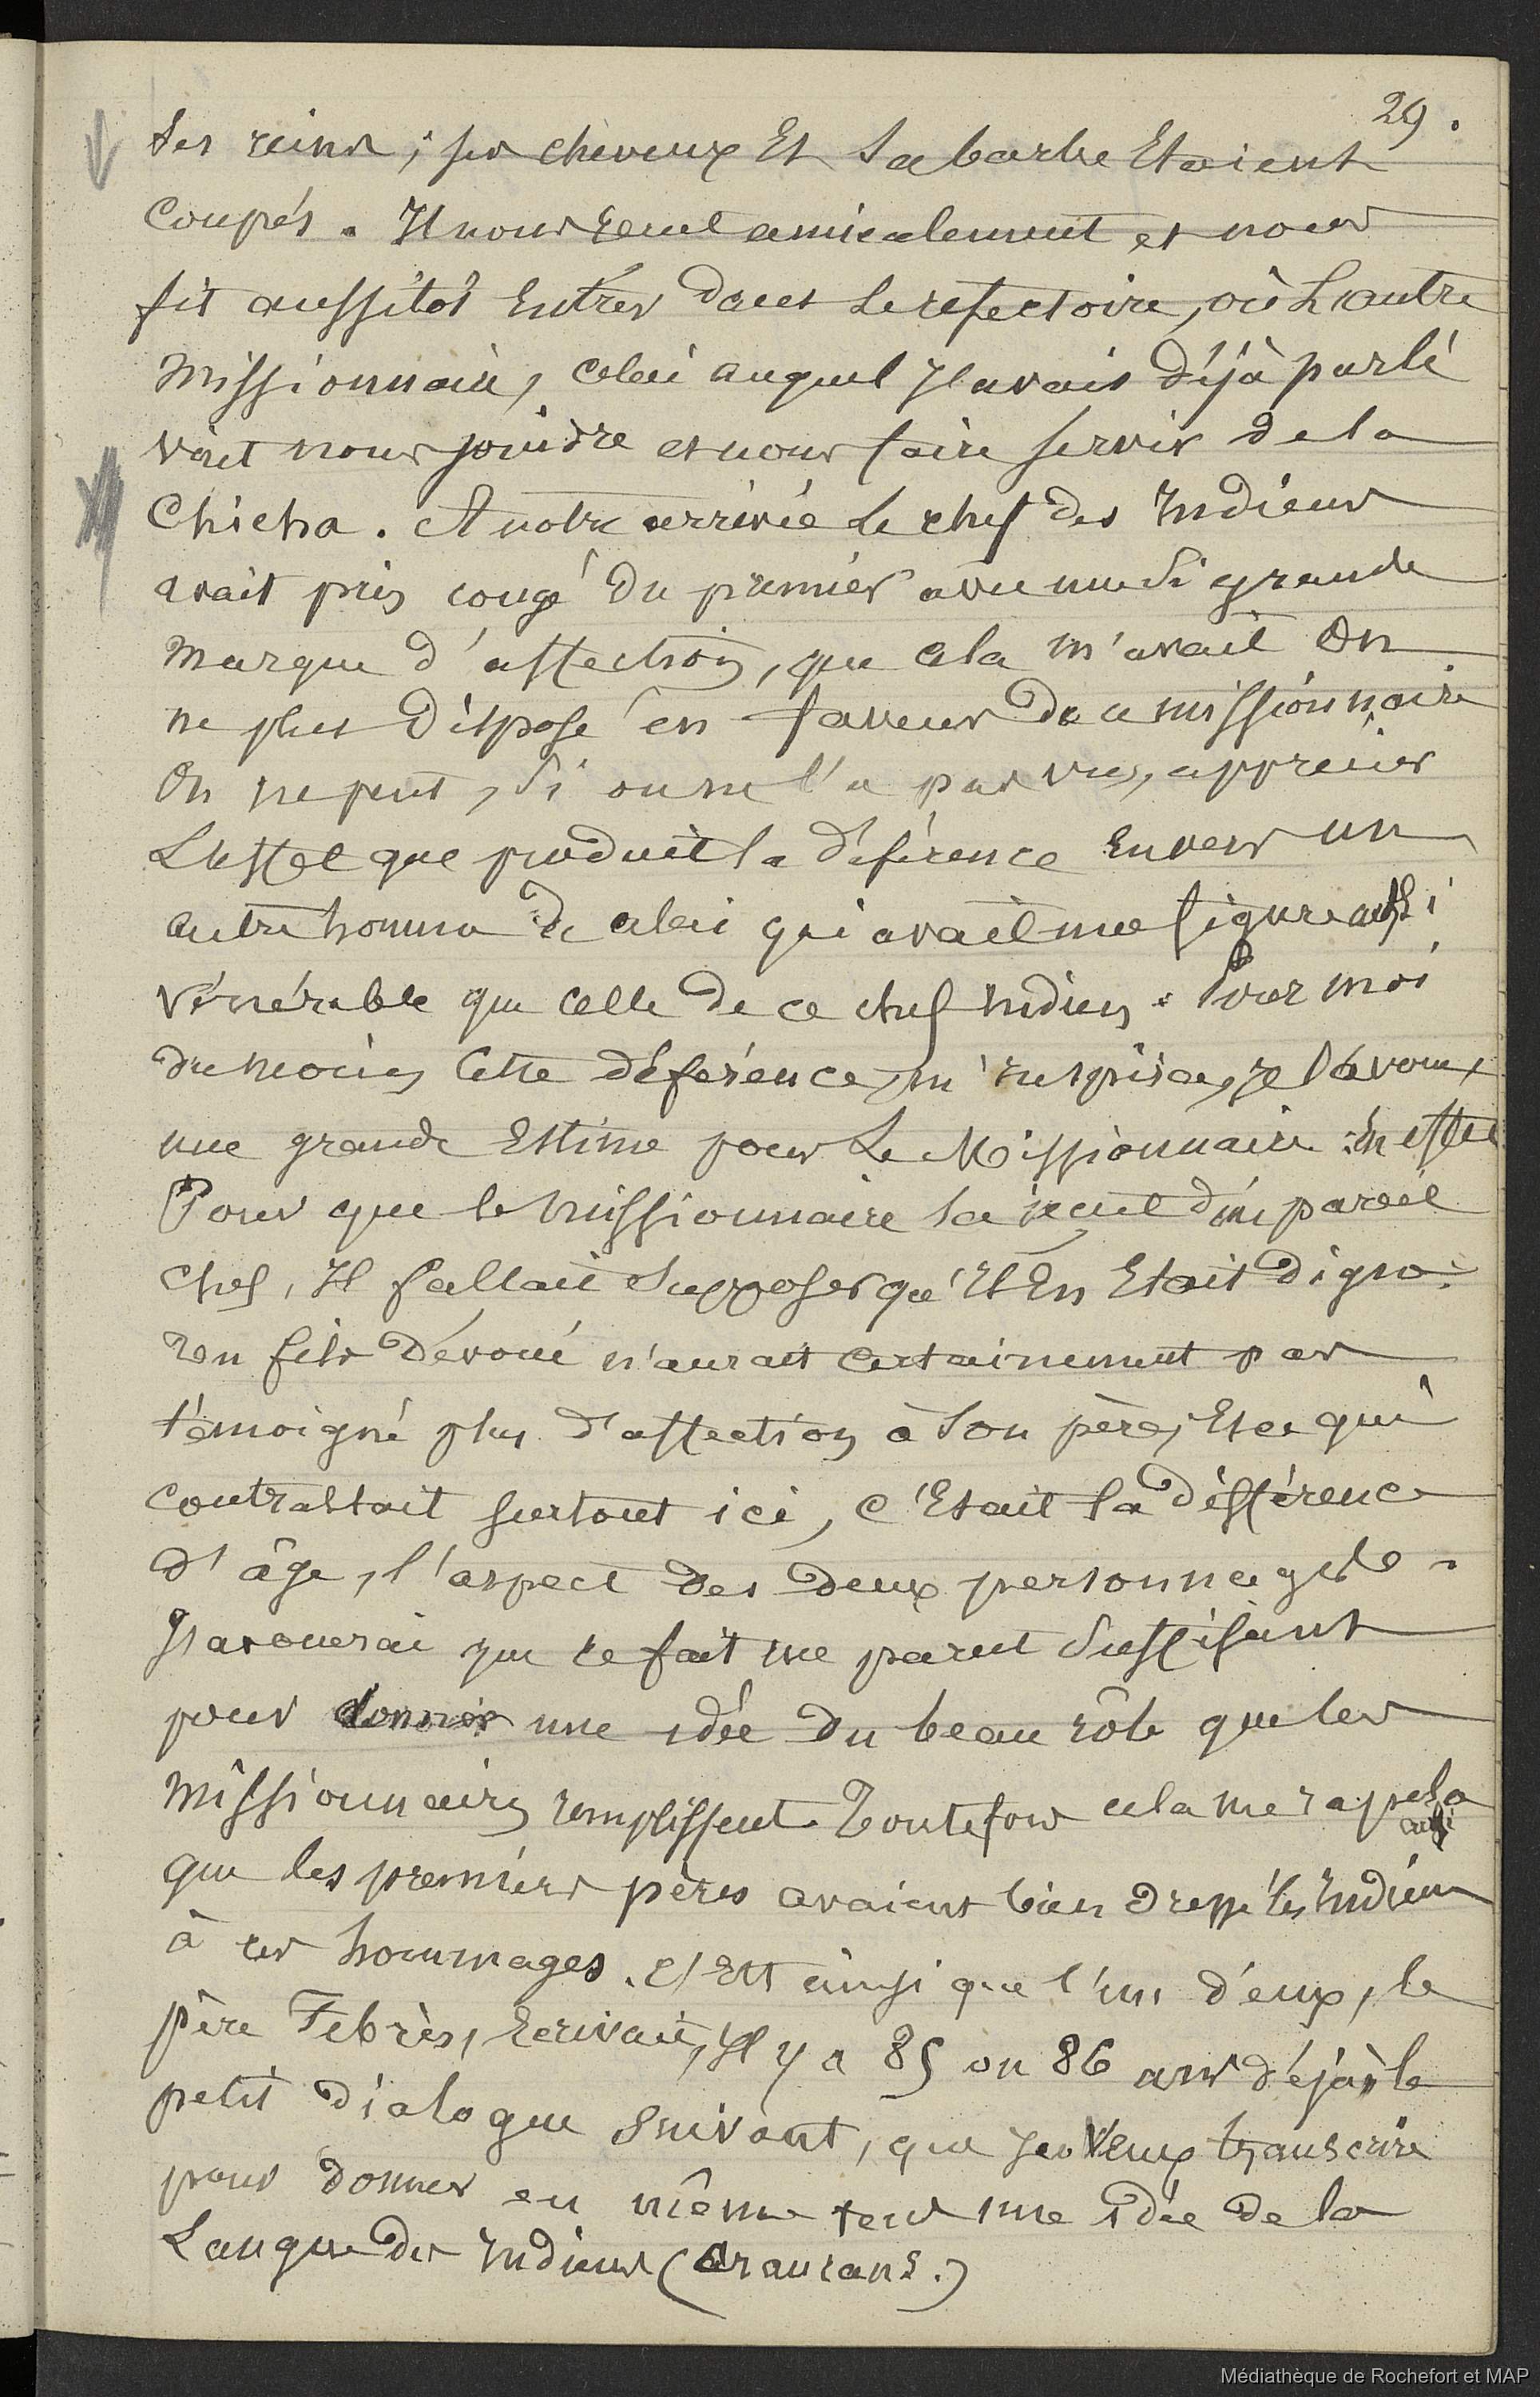 29.
ses reins ; ses cheveux Et sa barbe Etaient
Coupés. Il nous recut amicalement et nous
fit aussitôt Entrer dans Le réfectoire, où L'autre
Missionnaire, celui auquel J'avais déjà parlé
vint nous joindre et nous faire servir de la
Chicha. A notre arrivée Le chef des Indiens
avait pris congé du premier avec une si grande
marque d'affection, que cela m'avait on
ne plus disposé en faveur de ce missionnaire
On ne peut, si on ne l'a pas vu, apprécier
L'effet que produit la déférence Envers un
autre homme de celui qui avait une figure aussi
vénérable que celle de ce chef Indien. Pour moi
du moins Cette déférence m'inspira, je l'avoue,
une grande Estime pour Le Missionnaire. En effet
Pour que le missionnaire la reçut d'un pareil
Chef, Il fallait supposer qu'Il En Etait digne.
Un fils dévoué n'aurait certainement pas
témoigné plus d'affection à son père, Et ce qui
contrastait surtout ici, c'Etait la différence
d'âge, l'aspect des deux personnages.
J'avouerai que ce fait me parut suffisant
pour donner une idée du beau rôle que les
Missionnaires remplissent. Toutefois cela me rapela
aussi
que les premiers pères avaient bien dressé les Indiens
à ces hommages. C'Est ainsi que l'un d'eux, le
père Febrès, Ecrivait, Il y a 85 ou 86 ans déjà, le
petit dialogue suivant, que je veux transcrire
pour donner en même tems une idée de la
Langue des Indiens (araucans.)
Médiathèque de Rochefort et MAP